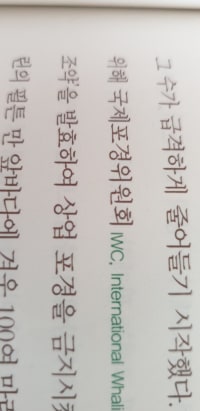 그 수가 급격하게 줄어들기 시작했다.
위해 국제포경위원회 IWC, International Whali
조약'을 발효하여 상업 포경을 금지시
린의 필튼 만 앞바다에 겨우 100여 마리